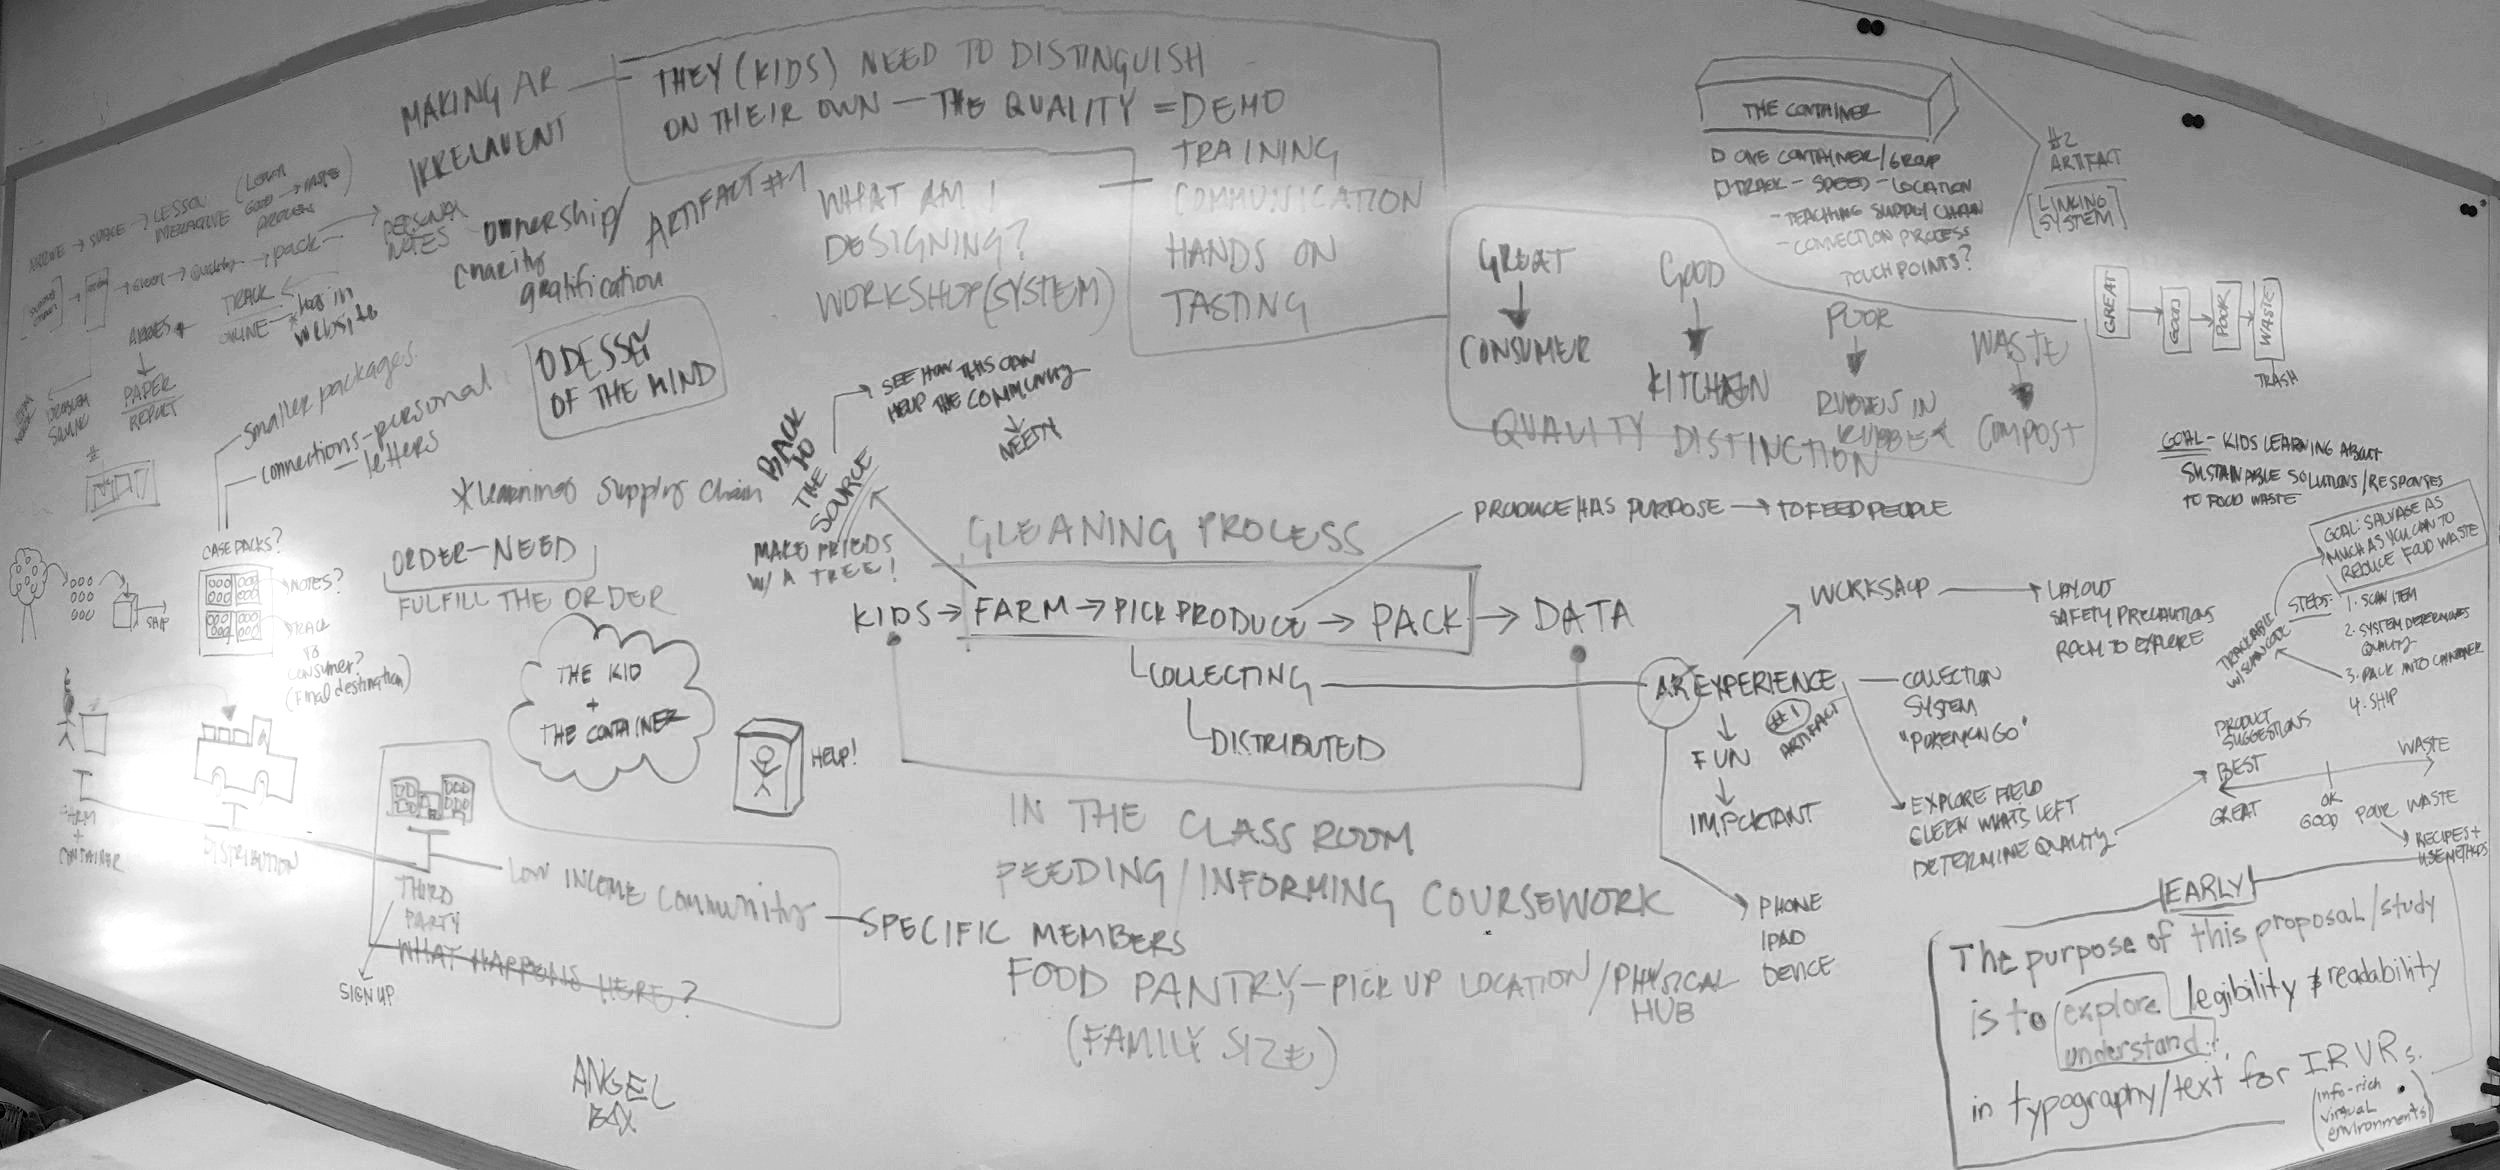 MAKING AR
IRRELAVENT
THEY (KIDS) NEED TO DISTINGUISH
ON THEIR OWN — THE QUALITY = DEMO
TRAINING
COMMUNICATION
HANDS ON
TASTING
ARTIFACT #1
WHAT AM I
DESIGNING?
WORKSHOP (SYSTEM)
ownership/
charity
gratification
LESSON
INTERACTIVE
PROCESS
→ pack
PERSONAL
NOTES
TRACK
ONLINE
*has in
website
PAPER
REPORT
PROBLEM
SOLVING
ODESSEY
OF THE MIND
smaller packages
connections - personal
letters
*Learning supply chain
CASE PACKS?
NOTES?
TRACK
TO
consumer?
(final destination)
SHIP
ORDER—NEED
FULFILL THE ORDER
THE KID
+
THE CONTAINER
HELP!
FARM
+
CONTAINER
DISTRIBUTION
THIRD
PARTY
LOW INCOME COMMUNITY
WHAT HAPPENS HERE?
SIGN UP
ANGEL
BOX
BACK
TO
THE
SOURCE
MAKE FRIEDS
W/ A TREE!
SEE HOW THIS CAN
HELP THE COMMUNITY
NEEDY
GLEANING PROCESS
KIDS → FARM → PICK PRODUCE → PACK → DATA
COLLECTING
DISTRIBUTED
PRODUCE HAS PURPOSE → TO FEED PEOPLE
IN THE CLASS ROOM
FEEDING/INFORMING COURSEWORK
SPECIFIC MEMBERS
FOOD PANTRY — PICK UP LOCATION/PHYSICAL
HUB
(FAMILY SIZE)
GREAT
CONSUMER
GOOD
KITCHEN
POOR
WASTE
COMPOST
QUALITY DISTINCTION
THE CONTAINER
ONE CONTAINER/GROUP
TRACK — SPEED — LOCATION
- TEACHING SUPPLY CHAIN
- CONNECTION PROCESS
TOUCH POINTS?
#2
ARTIFACT
[LINKING
SYSTEM]
GREAT
GOOD
POOR
WASTE
TRASH
GOAL — KIDS LEARNING ABOUT
SUSTAINABLE SOLUTIONS/RESPONSES
TO FOOD WASTE
GOAL: SALVAGE AS
MUCH AS YOU CAN TO
REDUCE FOOD WASTE
STEPS:
1. SCAN ITEM
2. SYSTEM DETERMINES
QUALITY
3. PACK INTO CONTAINER
4. SHIP
TRACKABLE
W/ SCAN CODE
AR EXPERIENCE
#1
ARTIFACT
FUN
IMPORTANT
LAYOUT
SAFETY PRECAUTIONS
ROOM TO EXPLORE
COLLECTION
SYSTEM
"POKEMON GO"
EXPLORE FIELD
GLEEN WHATS LEFT
DETERMINE QUALITY
PHONE
IPAD
DEVICE
PRODUCT
SUGGESTIONS
BEST
WASTE
GREAT
OK
GOOD
POOR WASTE
RECIPES +
USE METHODS
EARLY
The purpose of this proposal/study
is to explore legibility & readability
understand
in typography/text for IRVRs.
(info-rich
virtual
environments)